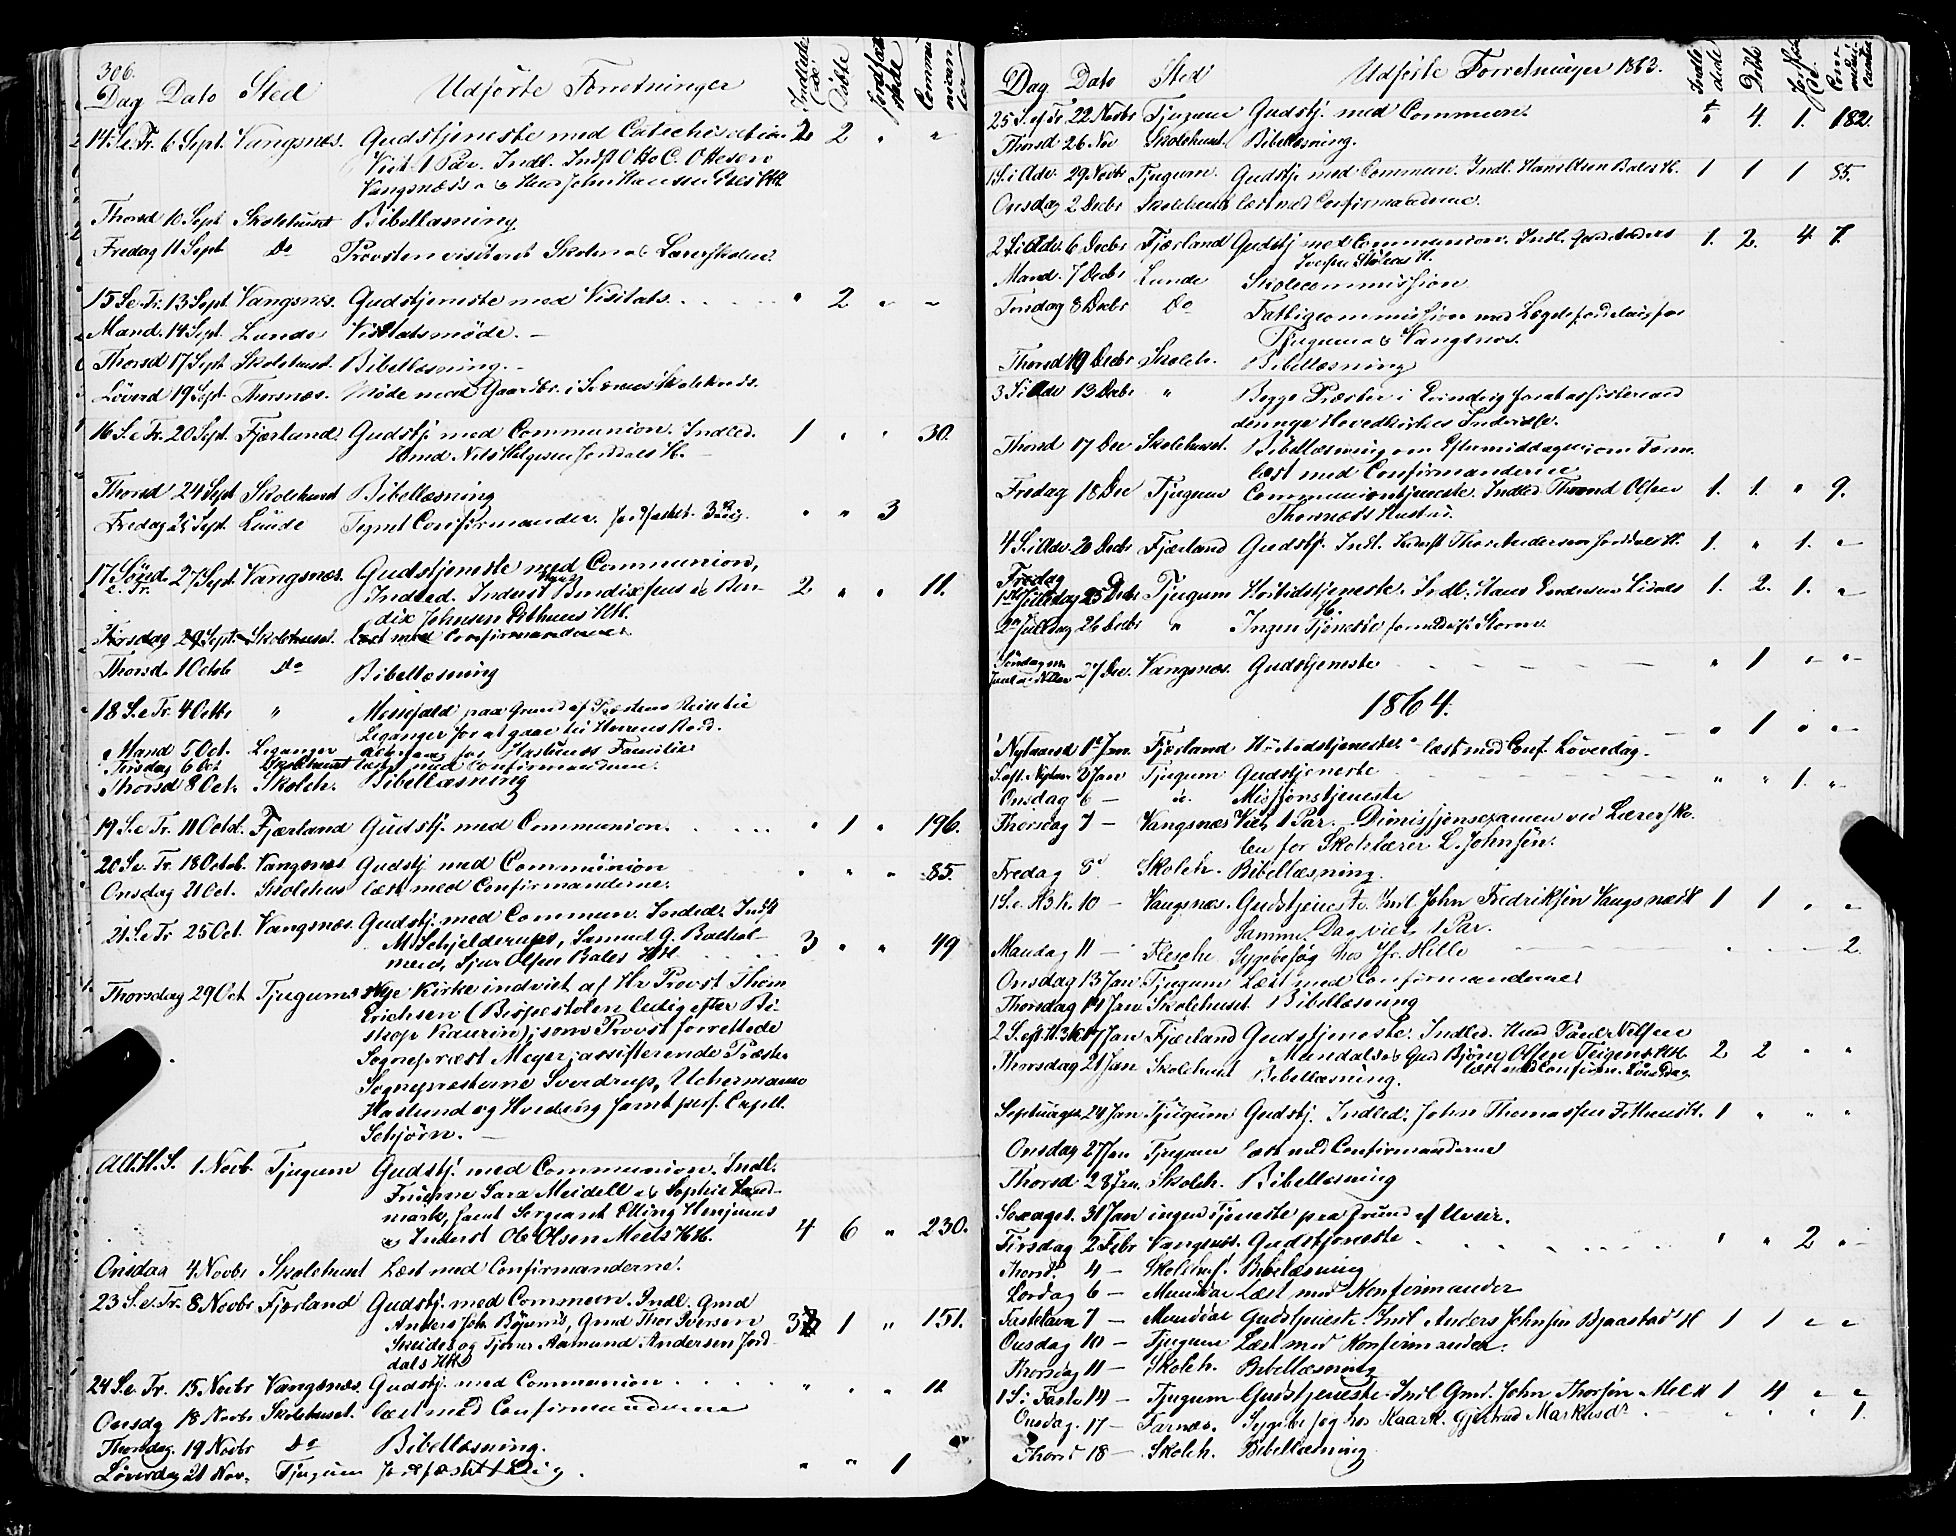 306.
Dag Dato Sted Udførte Forretninger Indledede Døbte Jordfæstede Communicanter
14 S. e. Tr. 6 Sept. Vangsnes. Gudstjeneste med Catechisation 2 2 " "
Viet 1 Par. Indl. Indst Otto C. Ottesen
Vangsnæs's & John Hansen HH.
Thorsd 10 Sept Skolehuset Bibellæsning
Fredag 11 Sept Do Provsten visiteret Skolen & Lærerskolen.
15 S. e. Tr. 13 Sept Vangsnes. Gudstjeneste med Visitats . . . . . " 2 " "
Mand. 14 Sept. Lunde Visitatsmøde. —
Thorsd 17 Sept Skolehuset. Bibellæsning. —
Løverd 19 Sept. Thorsnæs. Møde med i Skolekreds.
16 S. e. Tr. 20 Sept. Fjærland Gudstj. med Communion. Indled. 1 " " 30.
Nils Helgesen Jorddals H. —
Thorsd 24 Sept Skolehuset Bibellæsning
Fredag 25 Sept. Lunde Confirmander. Jordfæstet 3 Liig. " " 3
17 Sönd. e. Tr. 27 Sept. Vangsnes. Gudstjeneste med Communion, 2 " " 11.
Indled. Inderst Bendixsens & Ben-
dix Johnsen HH.
Tirsdag 29 Sept. Skolehuset. Læst med Confirmanderne
Thorsd. 1 Octob Do Bibellæsning
18 S. e Tr. 4 Octbr " Messefald paa Grund af Præstens Reise til
Leganger for at gaae til Herrens Bord.
Mand 5 Oct. Leganger for Familie
Tirsdag 6 Oct Skolehuset læst med Confirmanderne.
Thorsd 8 Oct. Skoleh. Bibellæsning
19 S. e Tr. 11 Octob. Fjærland Gudstj. med Communion. . . . . . " 1 " 196.
20 S. e. Tr. 18 Octob. Vangsnes Gudstj med Communion " " " 85.
Onsdag 21 Oct. Skolehus læst med Confirmanderne.
21 S. e Tr 25 Oct. Vangsnes. Gudstj. med Commun. Indled. Indst 3 " " 49
M. Schjelderups, Samuel G. Balchol-
mens, Sjur Olsen Bales HH. . . . . .
Thorsdag 29 Oct Tjugums nye Kirke indviet af Hr Provst Thom
Erichsen (Bispestolen ledig efter Bi-
skop Kaurin); som Provst forrettede
Sognepræst Meyer; assisterende Præster
Sognepræsterne Sverdrup, Uchermann
Haslund og Hvoslef samt pers. Capell.
Schjörn. —
All. H. S. 1 Novb. Tjugum Gudstj. med Communion. Indl.
Fruerne Sara Meidell & Sophie Land-
mark, samt Sergeant Elling Henjums
& Inderst Ole Olsen Meels HH. 4 6 " 230.
Onsdag 4 Novbr Skolehuset Læst med Confirmanderne.
23 S. e. Tr. 8 Novbr Fjærland Gudstj. med Commun. Indl. Gmd
Anders Joh. Böjums, Gmd Thor Iversen 3 1 " 151.
Skeides og Tjener Aamund Andersen Jord-
dals HH
24 S. e. Tr. 15 Novbr Vangsnes. Gudstj. med Communion . . . . . " " " 12
Onsdg 18 Novbr Skolehuset. læst med Confirmanderne
Thorsdag. 19 Novbr Do Bibellæsning.
Løverdag 21 Nov. Tjugum Jordfæstet 1 Liig. " " 1
Dag Dato Sted Udførte Forretninger 1863. Indledede Døbte Jordfæstede Communicanter
25 S. ef Tr. 22 Novbr Tjugum Gudstj. med Commun. " 4. 1. 182.
Thorsd 26 Nov Skolehuset. Bibellæsning.
1 S. i Adv. 29 Novbr Tjugum. Gudstj. med Commun. Indl. Hans Olsen Bales H. 1 1 1 85.
Onsdag 2 Decbr Skolehuset læst med Confirmanderne.
2 S. i Adv. 6 Decbr Fjærland Gudstj med Communion. Indl. Anders 1. 2. 4 7.
Iversen Støleens H.
Mand. 7 Decbr Lunde Skolecommission
Tirsdag 8 Decbr Do Fattigcommission med Lægdefordeling for
Tjugum & Vangsnes.
Thorsd 10 Decbr Skoleh. Bibellæsning
3 S i Adv 13 Decbr " Begge Præster i Evindvig for at assistere ved
den nye Hovedkirkes Indvielse.
Thorsd 17 Dec Skolehuset. Bibellæsning om Eftermiddagen; om Form.
læst med Confirmanderne
Fredag 18 Dec Tjugum Communiontjeneste. Indled. Thrond Olsen 1. 1. " 9.
Thorsnæs's Hustru.
4 S. i Adv. 20 Decbr Fjærland Gudstj. Indl. Thor Anderssen Jorddals H. 1. " 1. "
Fredag
1ste Juledag 25 Decbr Tjugum Høitidstjeneste. Indl. Hans Endresen 1. 2. 1. "
H.
2den Juledag 26 Decbr " Ingen Tjeneste formedelst Storm.
Søndag m. Juul og Nytaar 27 Dec. Vangsnes. Gudstjeneste " 1 " "
1864.
Nytaarsd 1ste Jan. Fjærland Høitidstjeneste læst med Conf. Løverdag. " 1 " "
S. eft. Nytaar 3 Jan Tjugum Gudstjeneste " " 1. "
Onsdag 6 — do. Missionstjeneste
Thorsdag 7 — Vangsnes Viet 1 Par. — Dimissjonsexamen ved Lærersko-
len for Skolelærer L. Johnsön.
Fredag 8 Skoleh. Bibellæsning.
1 S. e. H3K. 10 — Vangsnes. Gudstjeneste. Indl John Fredriksön Vangsnes H 1 1 " "
Samme Dag viet 1 Par.
Mandag 11 — Flesche Sygebesøg hos Hille 2.
Onsdag 13 Jan Tjugum Læst med Confirmanderne
Thorsdag 14 Jan Skolehuset Bibellæsning
2 S. eft H3K 17 Jan Fjærland Gudstjeneste. Indled. Hmd Poul Nilsen
Mundals & Gmd Bjørn Olsen Teigens HH. 2 2 " "
Thorsdag 21 Jan Skolehuset Bibellæsning. læst med Confirm. Løverdag
Septuages 24 Jan Tjugum Gudstj. Indled. John Thomassen H. 1 " " "
Onsdag 27 Jan Tjugum læst med Confirmanderne
Thorsd 28 Jan. Skoleh. Bibellæsning
Sexages. 31 Jan ingen Tjeneste paa Grund af Uveir.
Tirsdag 2 Febr Vangsnes. Gudstjeneste . . . . . . . " " 2 "
Thorsd. 4 — Skolehus. Bibelæsning
Lørdag 6 — Mundal Læst med Konfirmander
Fastelavn 7 — Mundal Gudstjeneste Indl Anders Johnsön Bjaastad H 1 1 " "
Onsdag 10 — Tjugum Læst med Konfirmander.
Thorsdag 11 — Skoleh. Bibellæsning
1 S. i Faste 14 — Tjugum Gudstjeneste. Indl. Gmd. John Thorsön Mel H 1 4 " "
Onsdag. 17 — Farnæs. Sygebesøg hos Kaark. Gjertrud Markusdr " " " 1.
Thorsd 18 — Skoleh. Bibellæsning.